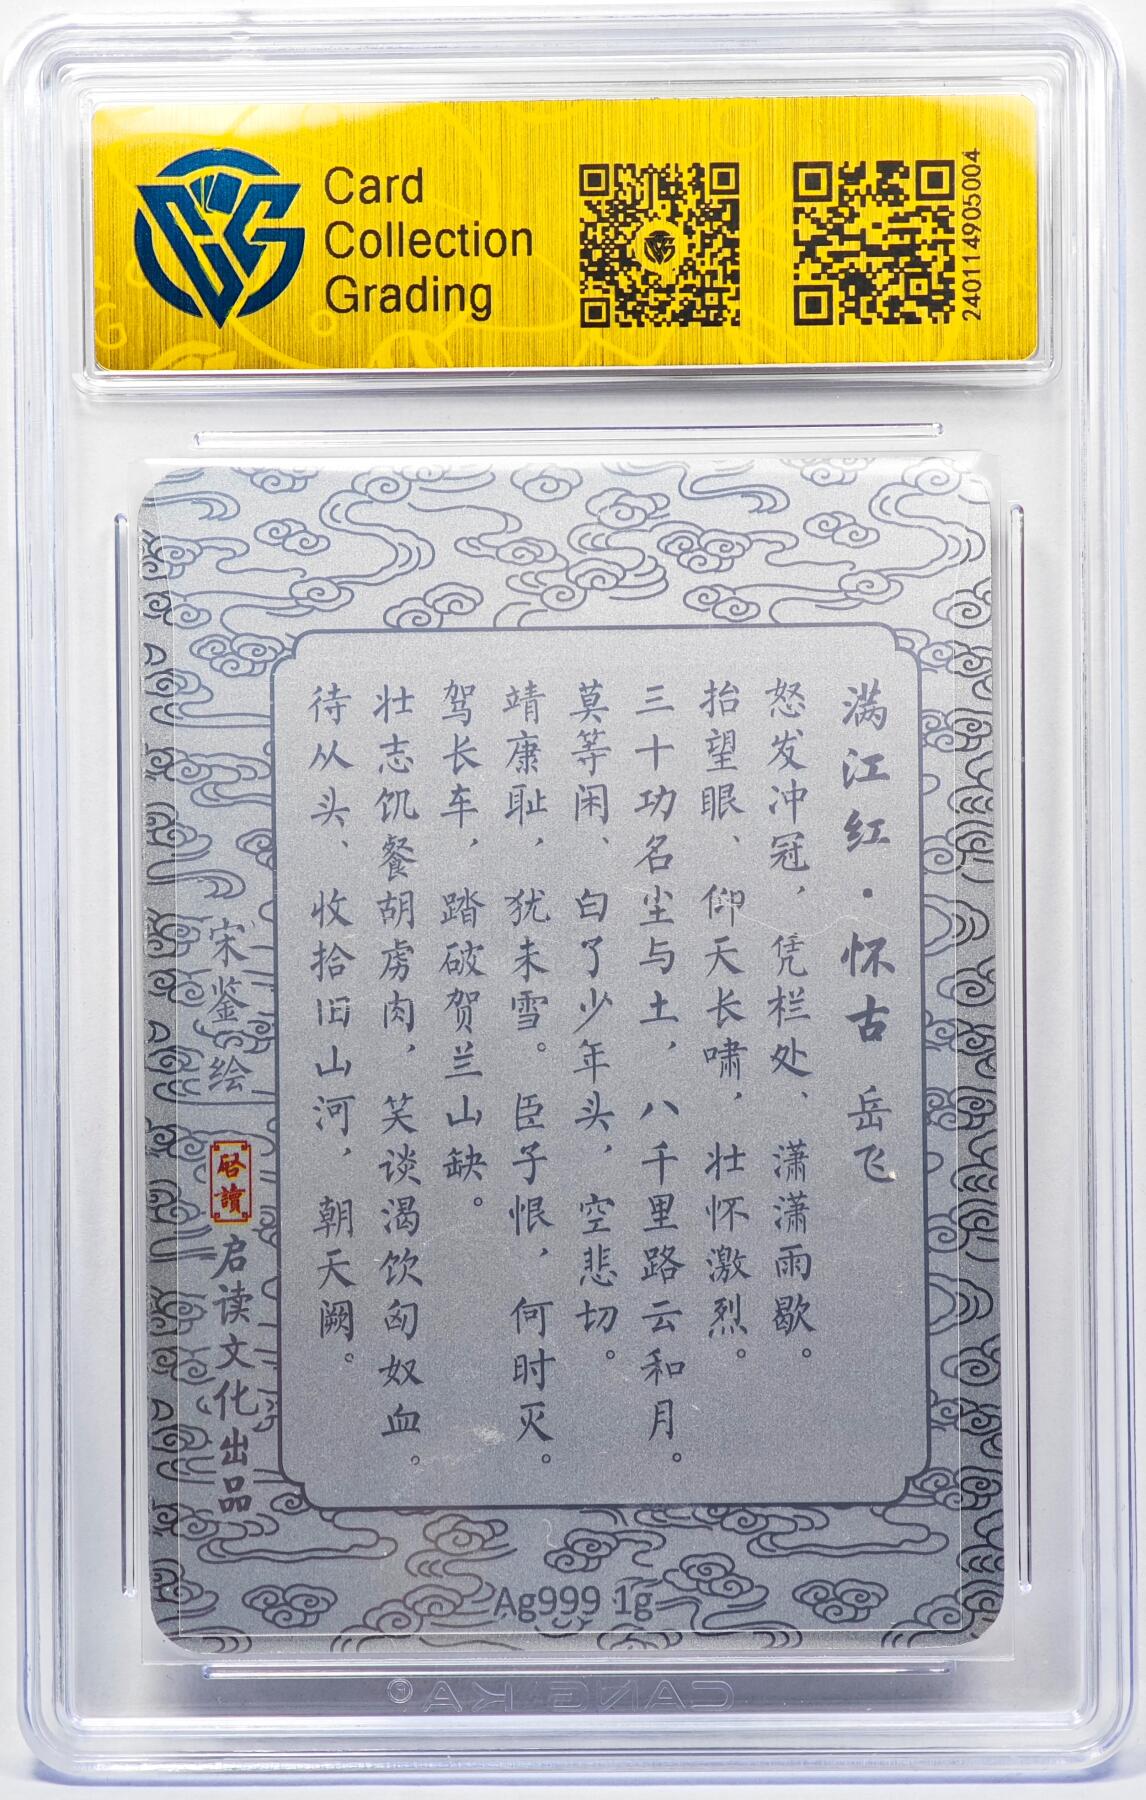 Card
Collection
Grading
240114905004
满江红·怀古 岳飞
怒发冲冠，凭栏处、潇潇雨歇。
抬望眼、仰天长啸，壮怀激烈。
三十功名尘与土，八千里路云和月。
莫等闲、白了少年头，空悲切。
靖康耻，犹未雪。臣子恨，何时灭。
驾长车，踏破贺兰山缺。
壮志饥餐胡虏肉，笑谈渴饮匈奴血。
待从头、收拾旧山河，朝天阙。
宋鉴绘
启讀
启读文化出品
Ag999 1g
CANG KA